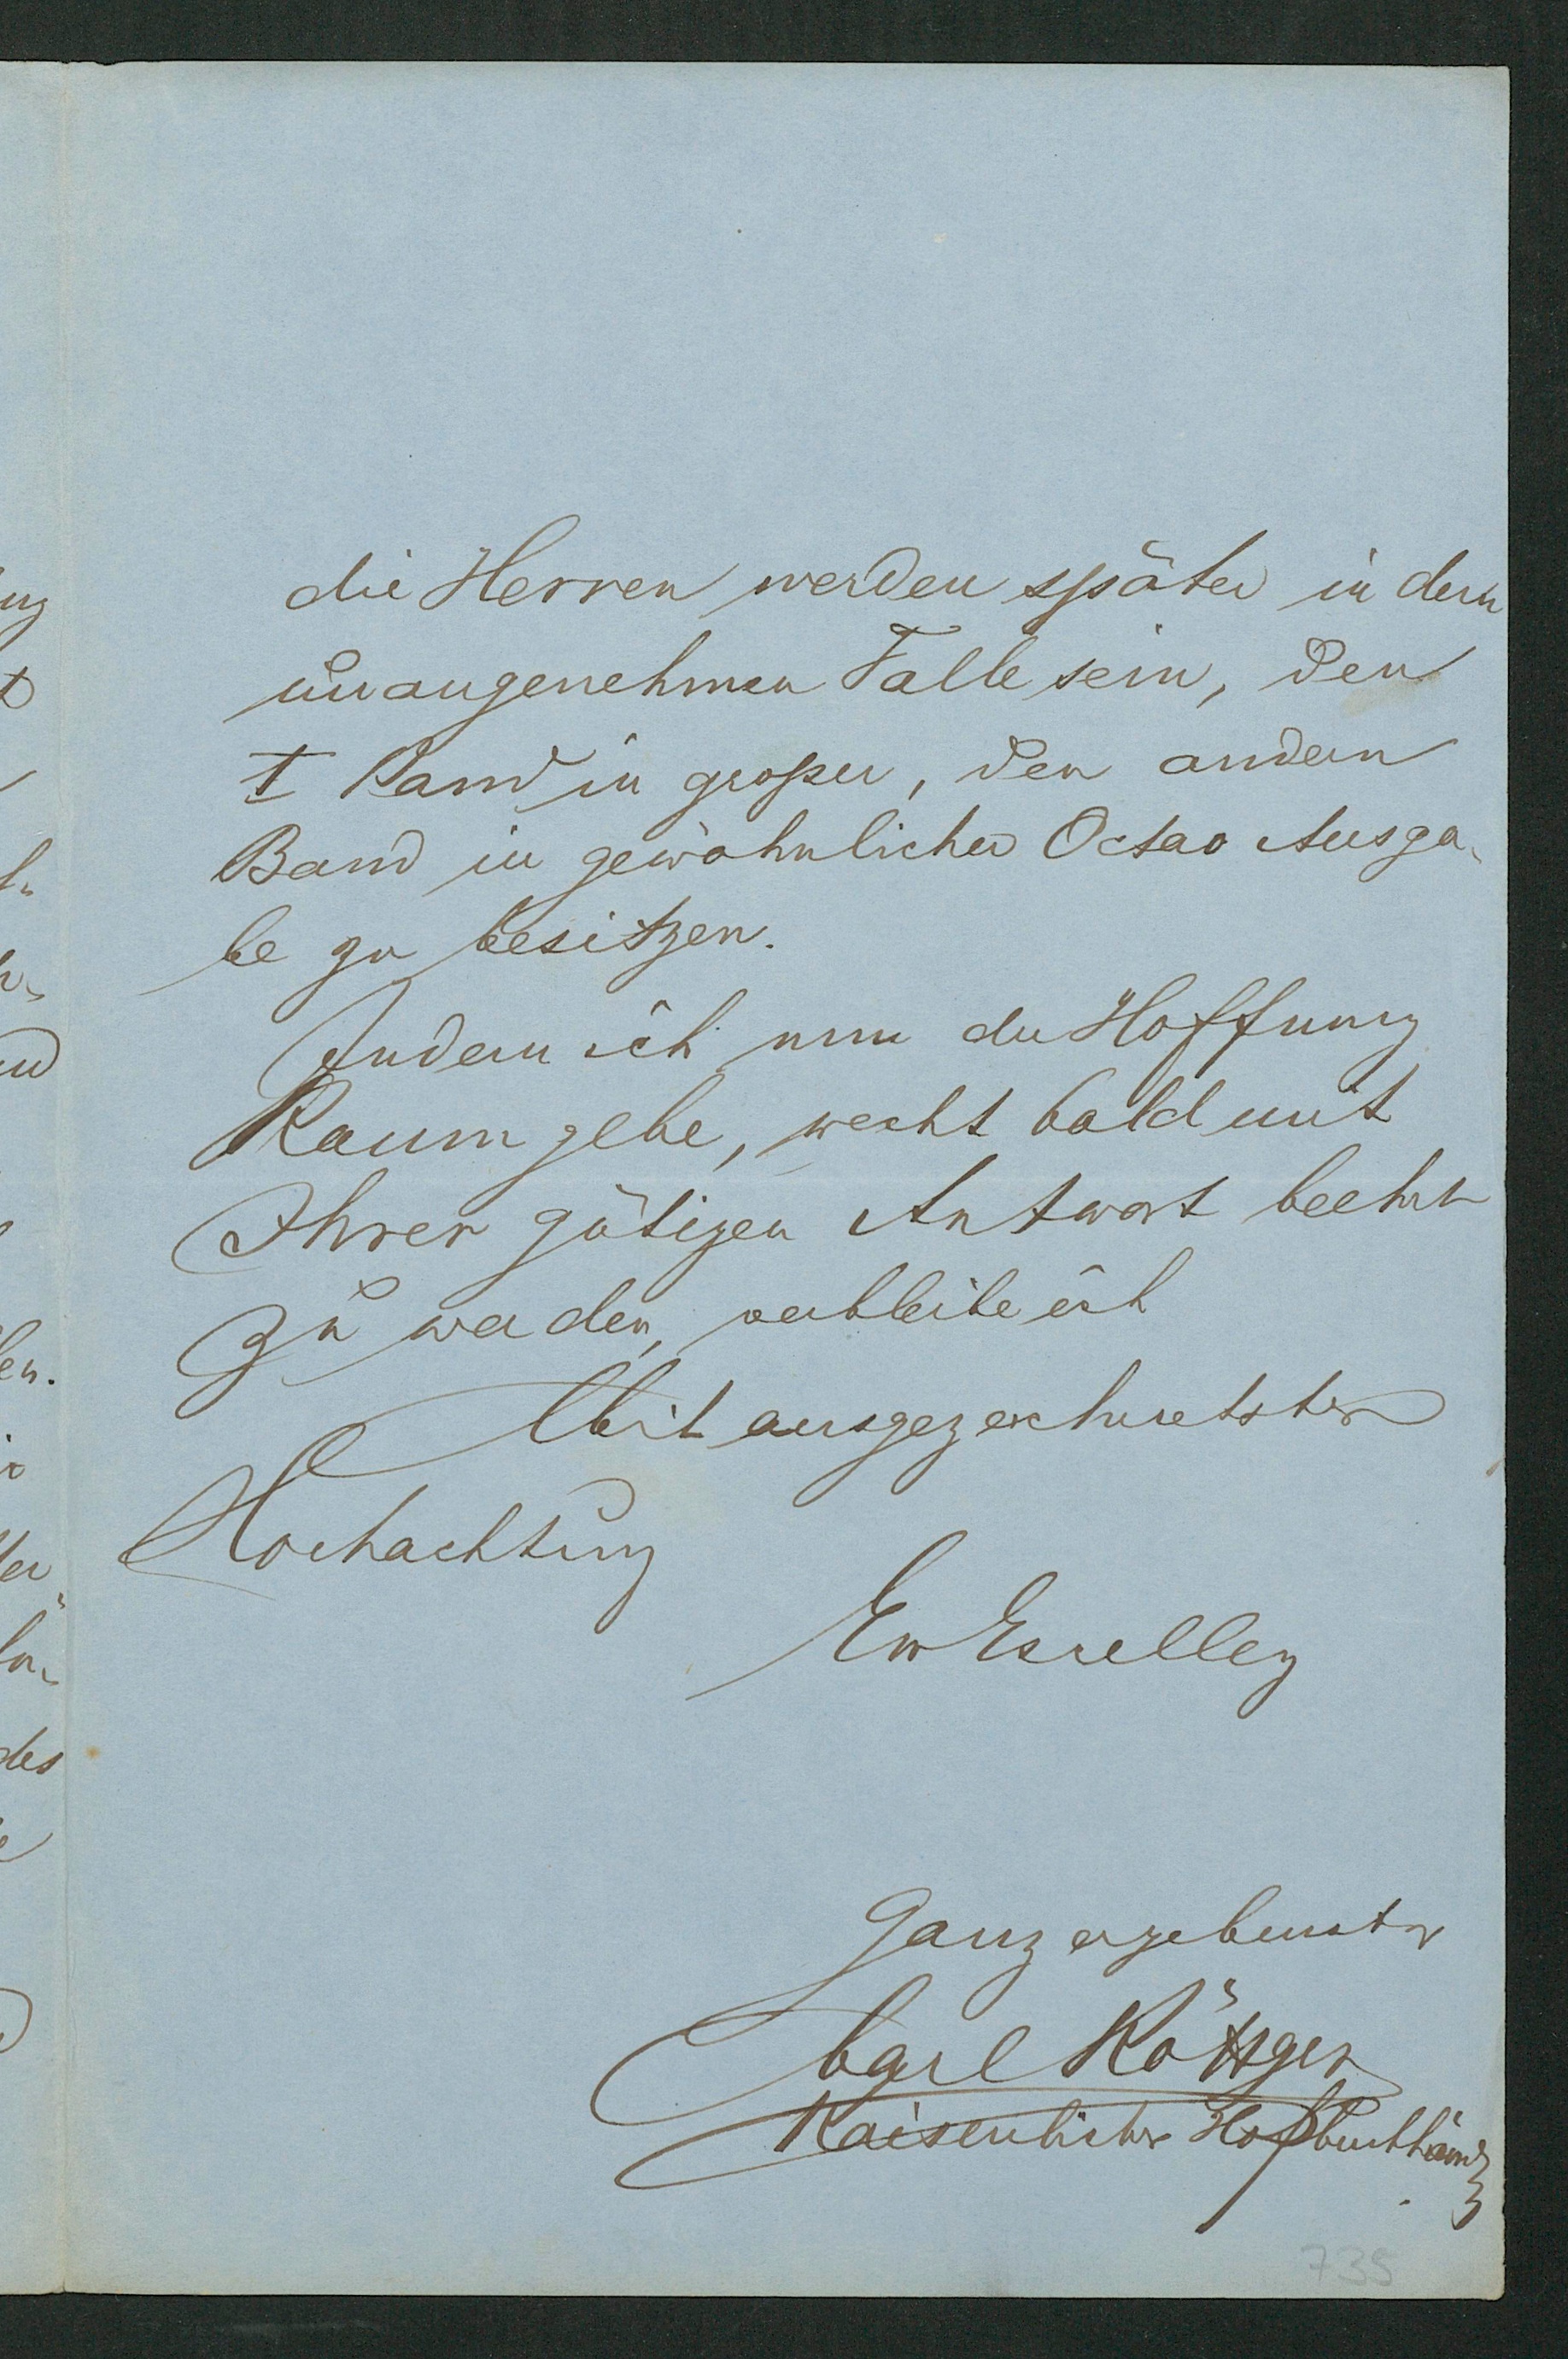 die Herren werden später in dem
unangenehmen Falle sein, den
I Band in großer, den andern
Band in gewöhnlicher Octav Ausga-
be zu besitzen.
Indem ich nun der Hoffnung
Raum gebe, recht bald mit
Ihrer gütigen Antwort beehrt
zu werden, verbleibe ich
Mit ausgezeichnetster
Hochachtung
Ew
Ganz ergebenster
Carl Röttger
Kaiserlicher Hofbuchhändl
735